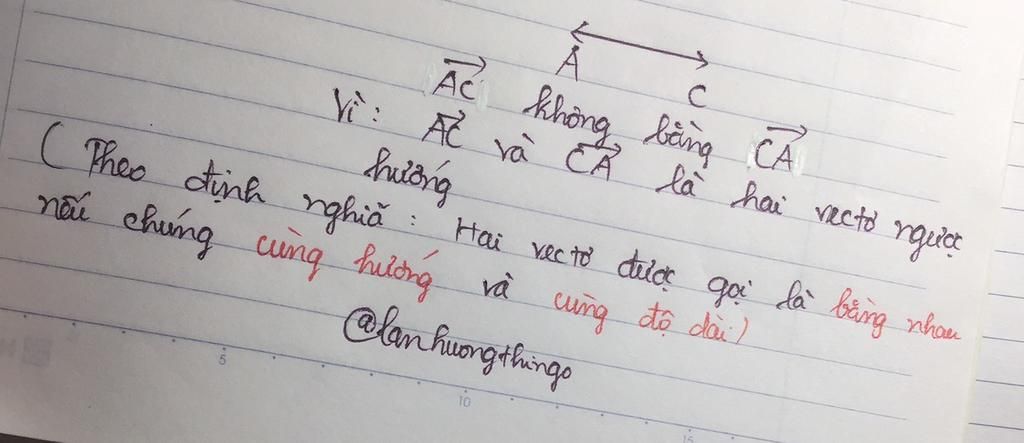 A
C
AC không bằng CA
Vì: AC và CA là hai vectơ ngược
hướng
(Theo định nghiã: Hai vectơ được gọi là bằng nhau
nếu chúng cùng hướng và cùng độ dài.)
@lanhuongthingo
5
10
15